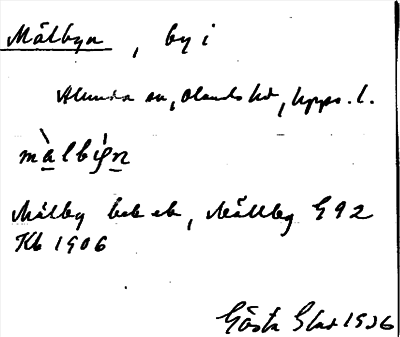 Målbyn, by i
Alunda sn, Olands hd, Upps. l.
màlbýn
Målby heb eb, Mållby G 92
Kb 1906
Gösta Stad 1936